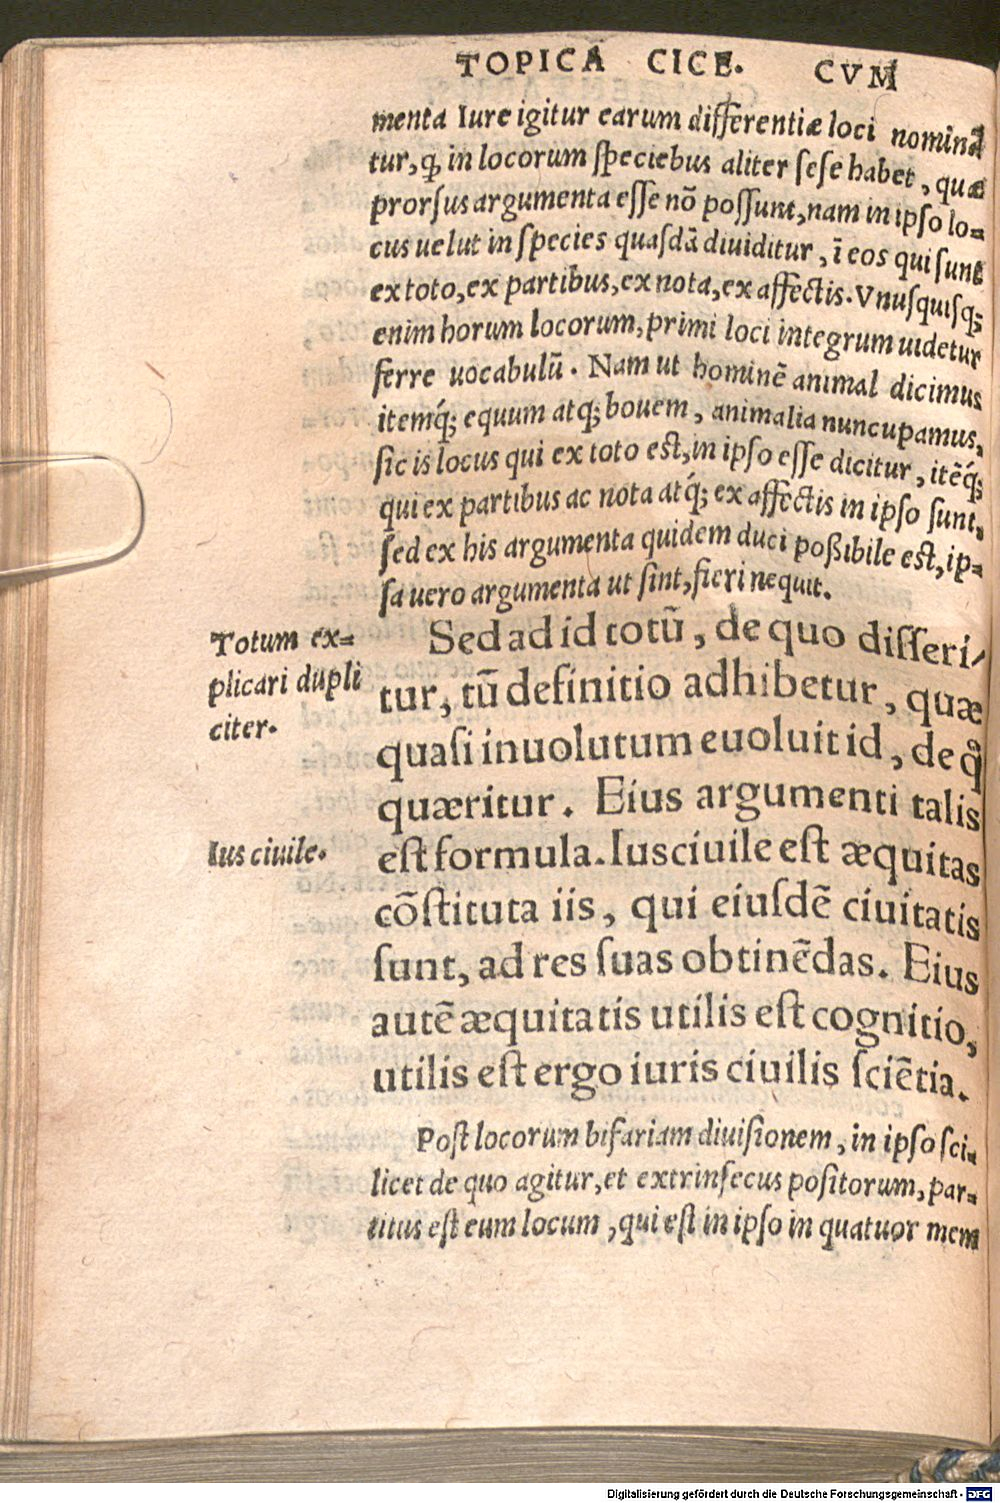 TOPICA CICE. CVM
menta Iure igitur earum differentiæ loci nominã
tur, ꝙ in locorum speciebus aliter sese habet, quæ
prorsus argumenta esse nõ possunt, nam in ipso lo-
cus uelut in species quasdã diuiditur, ĩ eos qui sunt
ex toto, ex partibus, ex nota, ex affectis. Vnusquisq;
enim horum locorum, primi loci integrum uidetur
ferre uocabulũ. Nam ut hominẽ animal dicimus
itemq́; equum atq; bouem, animalia nuncupamus,
sic is locus qui ex toto est, in ipso esse dicitur, itẽq́;
qui ex partibus ac nota atq́; ex affectis in ipso sunt,
sed ex his argumenta quidem duci poßibile est, ip-
sa uero argumenta ut sint, fieri nequit.
Totum ex-
plicari dupli
citer.
Sed ad id totũ, de quo disseri-
tur, tũ definitio adhibetur, quæ
quasi inuolutum euoluit id, de qͦ
quæritur. Eius argumenti talis
Ius ciuile.
est formula. Ius ciuile est æquitas
cõstituta iis, qui eiusdẽ ciuitatis
sunt, ad res suas obtinẽdas. Eius
autẽ æquitatis utilis est cognitio,
utilis est ergo iuris ciuilis sciẽtia.
Post locorum bifariam diuisionem, in ipso sci-
licet de quo agitur, et extrinsecus positorum, par-
titus est eum locum, qui est in ipso in quatuor mem
Digitalisierung gefördert durch die Deutsche Forschungsgemeinschaft - DFG